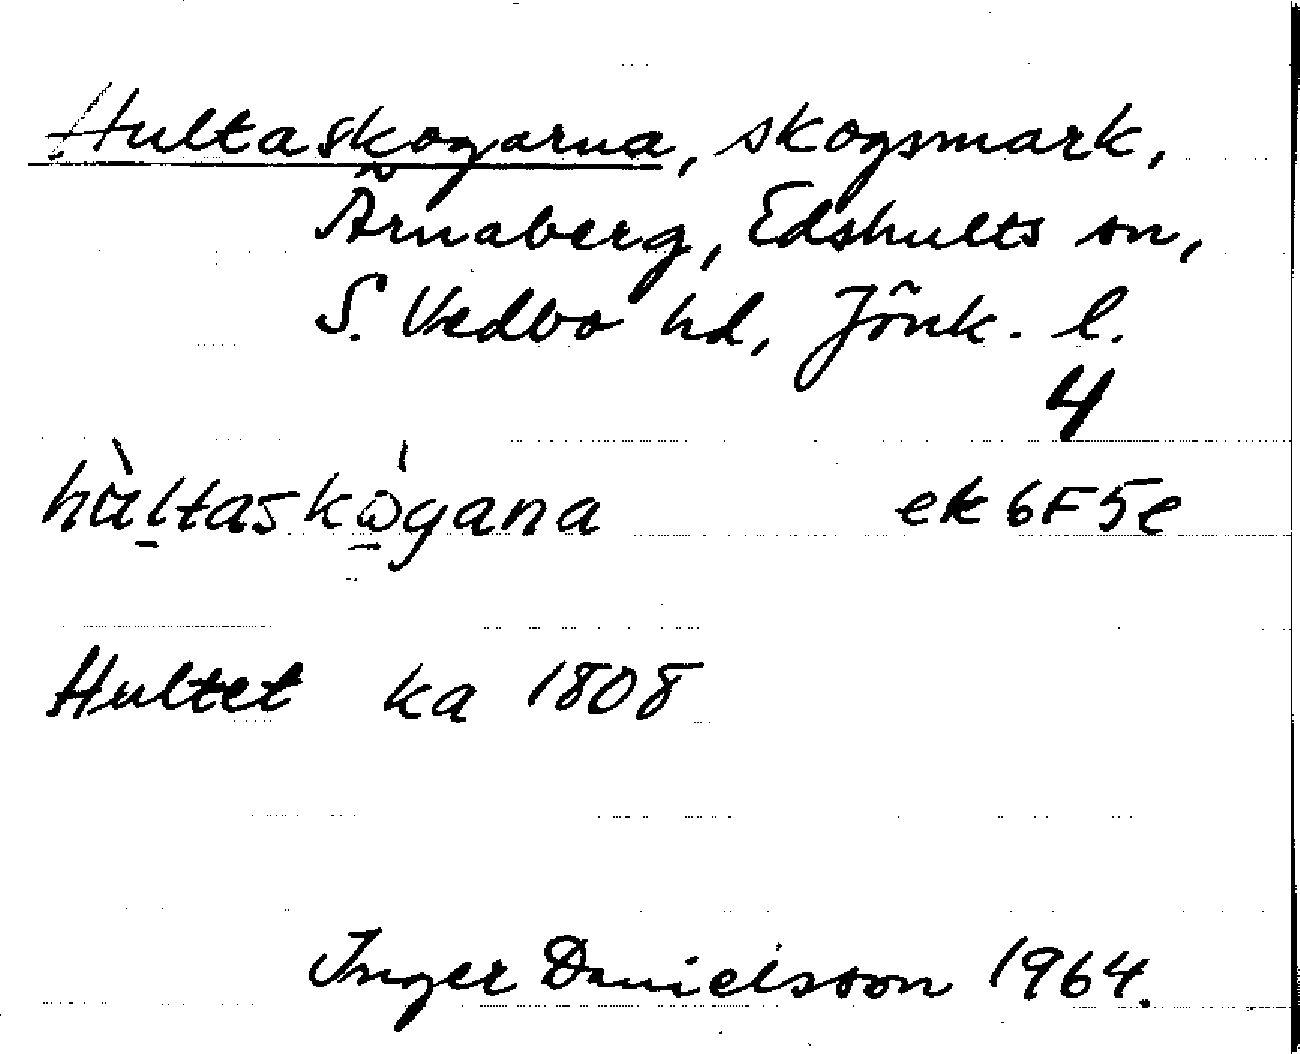 Hultaskogarna, skogsmark,
Ärnaberg, Edshults sn,
S. Vedbo hd, Jönk. l.
4
hùltaskógana ek 6F5e
Hultet ka 1808
Inger Danielsson 1964.